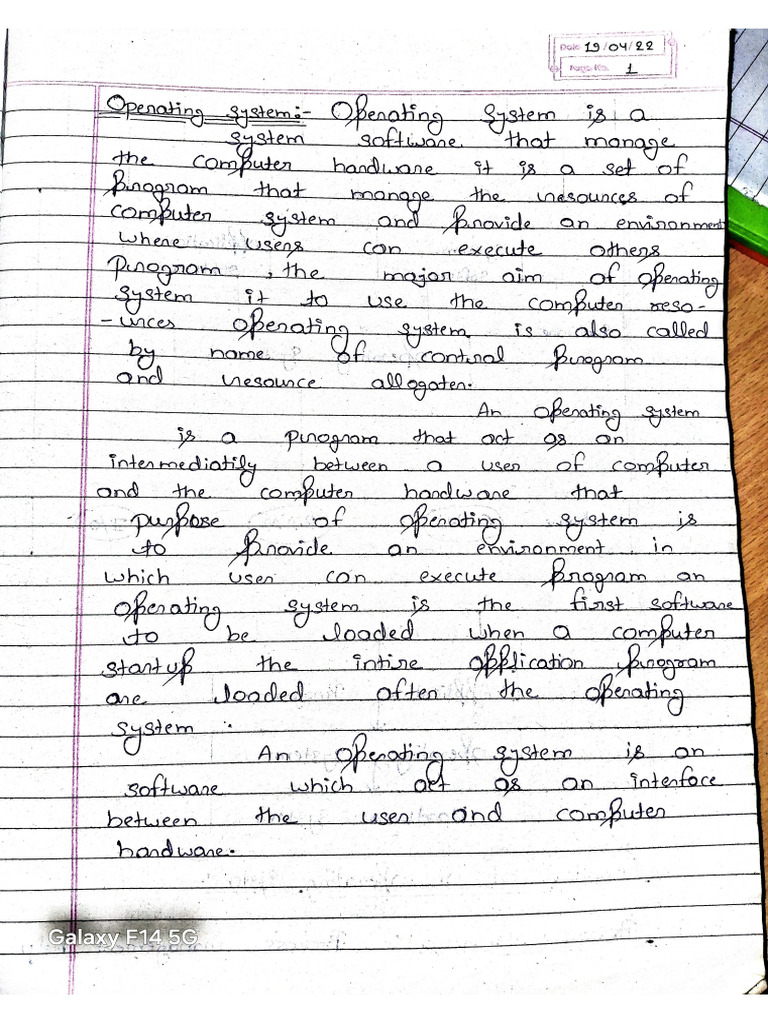 Date 19/04/22
Page No. 1
Operating system:- Operating system is a
system software that manage
the computer hardware it is a set of
program that manage the resources of
computer system and provide an environment
where users can execute others
program, the major aim of operating
system it to use the computer reso-
-urces operating system is also called
by name of control program
and resource allogater.
An operating system
is a program that act as an
intermediatily between a user of computer
and the computer hardware that
purpose of operating system is
to provide an environment in
which user can execute program an
operating system is the first software
to be loaded when a computer
startup the intire application program
are loaded after the operating
system.
An operating system is an
software which act as an interface
between the user and computer
hardware.
Galaxy F14 5G